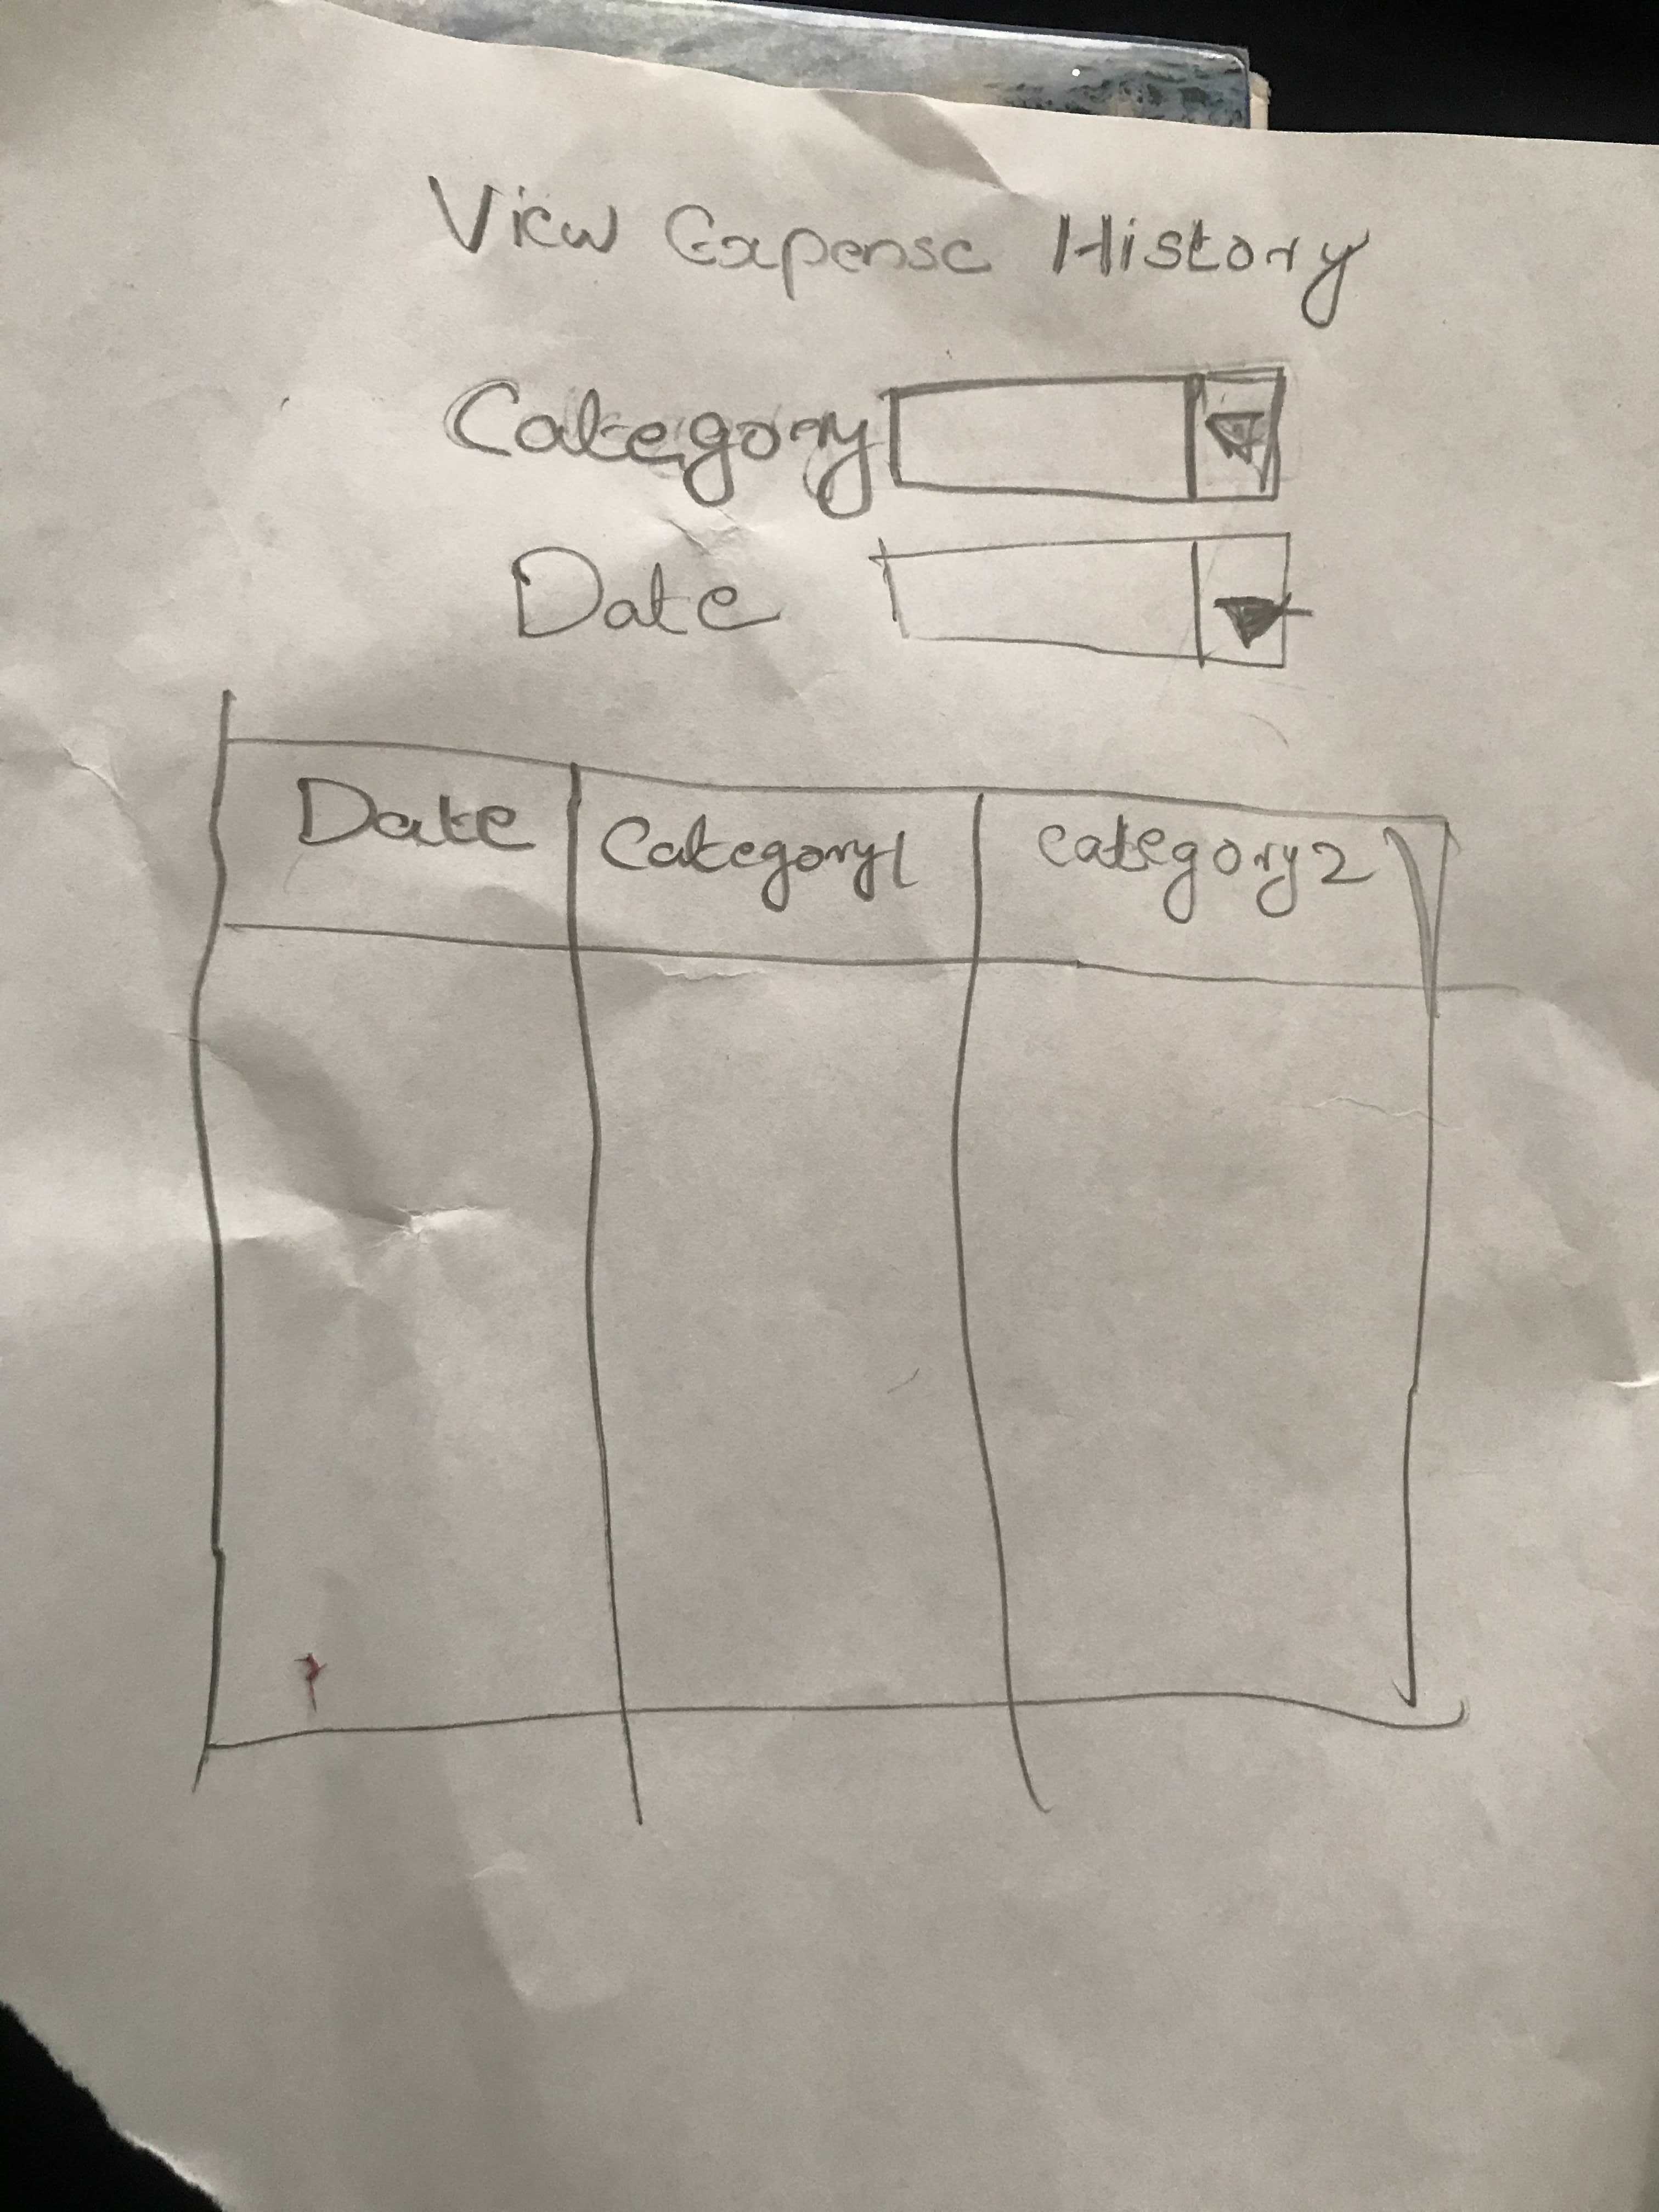 View Expense History
Category
Date
Date Category1 category2